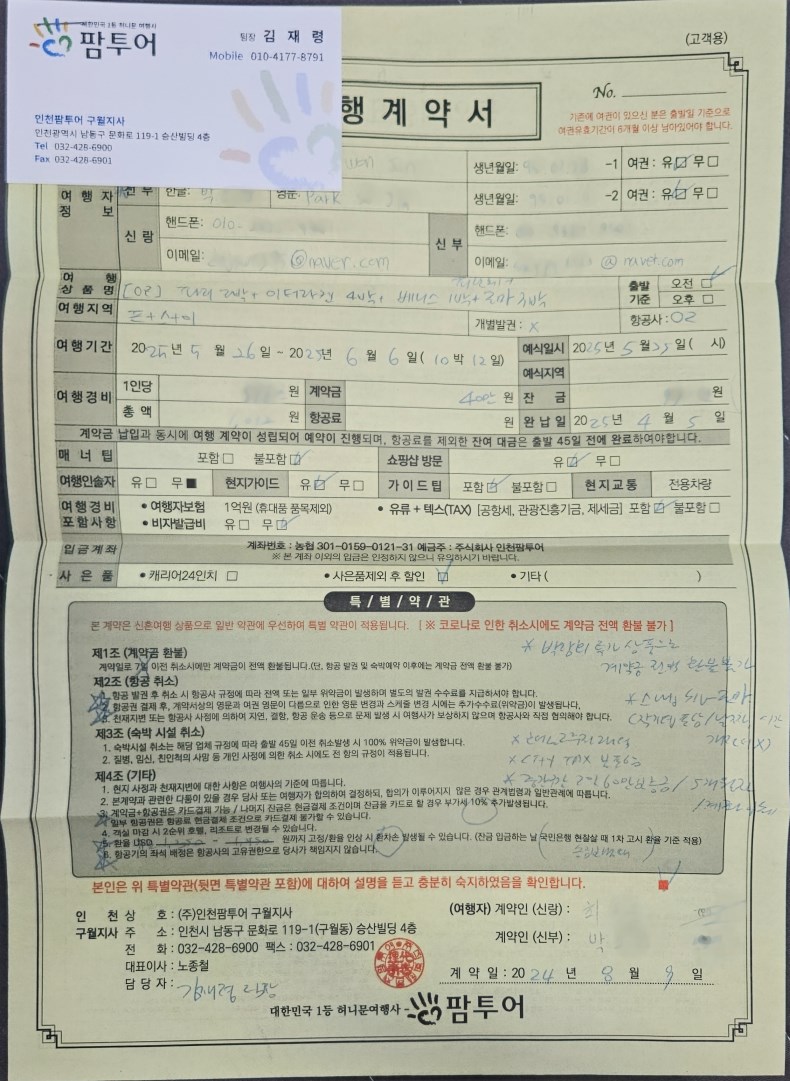 대한민국 1등 허니문 여행사
팜투어
팀장 김 재 령
Mobile 010-4177-8791
인천팜투어 구월지사
인천광역시 남동구 문화로 119-1 승산빌딩 4층
Tel 032-428-6900
Fax 032-428-6901
(고객용)
행 계 약 서
No.
기존에 여권이 있으신 분은 출발일 기준으로
여권유효기간이 6개월 이상 남아있어야 합니다.
생년월일: -1 여권: 유☑ 무□
여 행 자 정 보
신 부 한글: 박 영문: Park
생년월일: -2 여권: 유☑ 무□
신 랑 핸드폰: 010-
이메일: @naver.com
신 부 핸드폰:
이메일: @naver.com
여 행 상 품 명 [OZ] 파리 2박 + 인터라켄 4박 + 베니스 1박 + 로마 3박
출발 기준 오전 ☑ 오후 □
여행지역 프+스+이 개별발권: X 항공사: OZ
여행기간 2025년 5월 26일 ~ 2025년 6월 6일 (10박 12일) 예식일시 2025년 5월 25일( 시)
예식지역
여행경비 1인당 원 계약금 40만 원 잔 금 원
총 액 원 항공료 원 완 납 일 2025년 4월 5일
계약금 납입과 동시에 여행 계약이 성립되어 예약이 진행되며, 항공료를 제외한 잔여 대금은 출발 45일 전에 완료하여야합니다.
매 너 팁 포함□ 불포함☑ 쇼핑샵 방문 유☑ 무□
여행인솔자 유□ 무■ 현지가이드 유☑ 무□ 가 이 드 팁 포함☑ 불포함□ 현지교통 전용차량
여행경비 포함사항 • 여행자보험 1억원 (휴대품 품목제외) • 유류 + 텍스(TAX) [공항세, 관광진흥기금, 제세금] 포함☑ 불포함□
• 비자발급비 유□ 무☑
입금계좌 계좌번호: 농협 301-0159-0121-31 예금주: 주식회사 인천팜투어
※ 본 계좌 이외의 입금은 인정하지 않으니 유의하시기 바랍니다.
사 은 품 • 캐리어24인치 □ • 사은품제외 후 할인 ☑ • 기타 ( )
특/별/약/관
본 계약은 신혼여행 상품으로 일반 약관에 우선하여 특별 약관이 적용됩니다. [ ※ 코로나로 인한 취소시에도 계약금 전액 환불 불가 ]
* 박람회 특가 상품으로
계약금 전액 환불불가
제1조 (계약금 환불)
계약일로 7일 이전 취소시에만 계약금이 전액 환불됩니다.(단, 항공 발권 및 숙박예약 이후에는 계약금 전액 환불 불가)
제2조 (항공 취소)
1. 항공 발권 후 취소 시 항공사 규정에 따라 전액 또는 일부 위약금이 발생하며 별도의 발권 수수료를 지급하셔야 합니다.
2. 항공권 결제 후, 계약서상의 영문과 여권 영문이 다름으로 인한 영문 변경과 스케줄 변경 시에는 추가수수료(위약금)이 발생됩니다.
3. 천재지변 또는 항공사 사정에 의하여 지연, 결항, 항공 운송 등으로 문제 발생 시 여행사가 보상하지 않으며 항공사와 직접 협의해야 합니다.
제3조 (숙박 시설 취소)
1. 숙박시설 취소는 해당 업체 규정에 따라 출발 45일 이전 취소발생 시 100% 위약금이 발생합니다.
2. 질병, 임신, 친인척의 사망 등 개인 사정에 의한 취소 시에도 전 항의 규정이 적용됩니다.
* CITY TAX 불포함
제4조 (기타)
1. 현지 사정과 천재지변에 대한 사항은 여행사의 기준에 따릅니다.
2. 본계약과 관련한 다툼이 있을 경우 당사 또는 여행자가 합의하여 결정하되, 합의가 이루어지지 않은 경우 관계법령과 일반관례에 따릅니다.
3. 계약금+항공권은 카드결제 가능 / 나머지 잔금은 현금결제 조건이며 잔금을 카드로 할 경우 부가세 10% 추가발생됩니다.
일부 항공권은 항공료 현금결제 조건으로 카드결제 불가할 수 있습니다.
4. 객실 마감 시 2순위 호텔, 리조트로 변경될 수 있습니다.
5. 환율 USD 원까지 고정/환율 인상 시 환차손 발생될 수 있습니다. (잔금 입금하는 날 국민은행 현찰살 때 1차 고시 환율 기준 적용)
6. 항공기의 좌석 배정은 항공사의 고유권한으로 당사가 책임지지 않습니다.
본인은 위 특별약관(뒷면 특별약관 포함)에 대하여 설명을 듣고 충분히 숙지하였음을 확인합니다.
인 천 구월지사
상 호 : (주)인천팜투어 구월지사
주 소 : 인천시 남동구 문화로 119-1(구월동) 승산빌딩 4층
전 화 : 032-428-6900 팩스 : 032-428-6901
대표이사 : 노종철
담 당 자 : 김재령 팀장
(여행자) 계약인 (신랑) : 최
계약인 (신부) : 박
계 약 일 : 2024 년 8 월 9 일
대한민국 1등 허니문여행사 팜투어